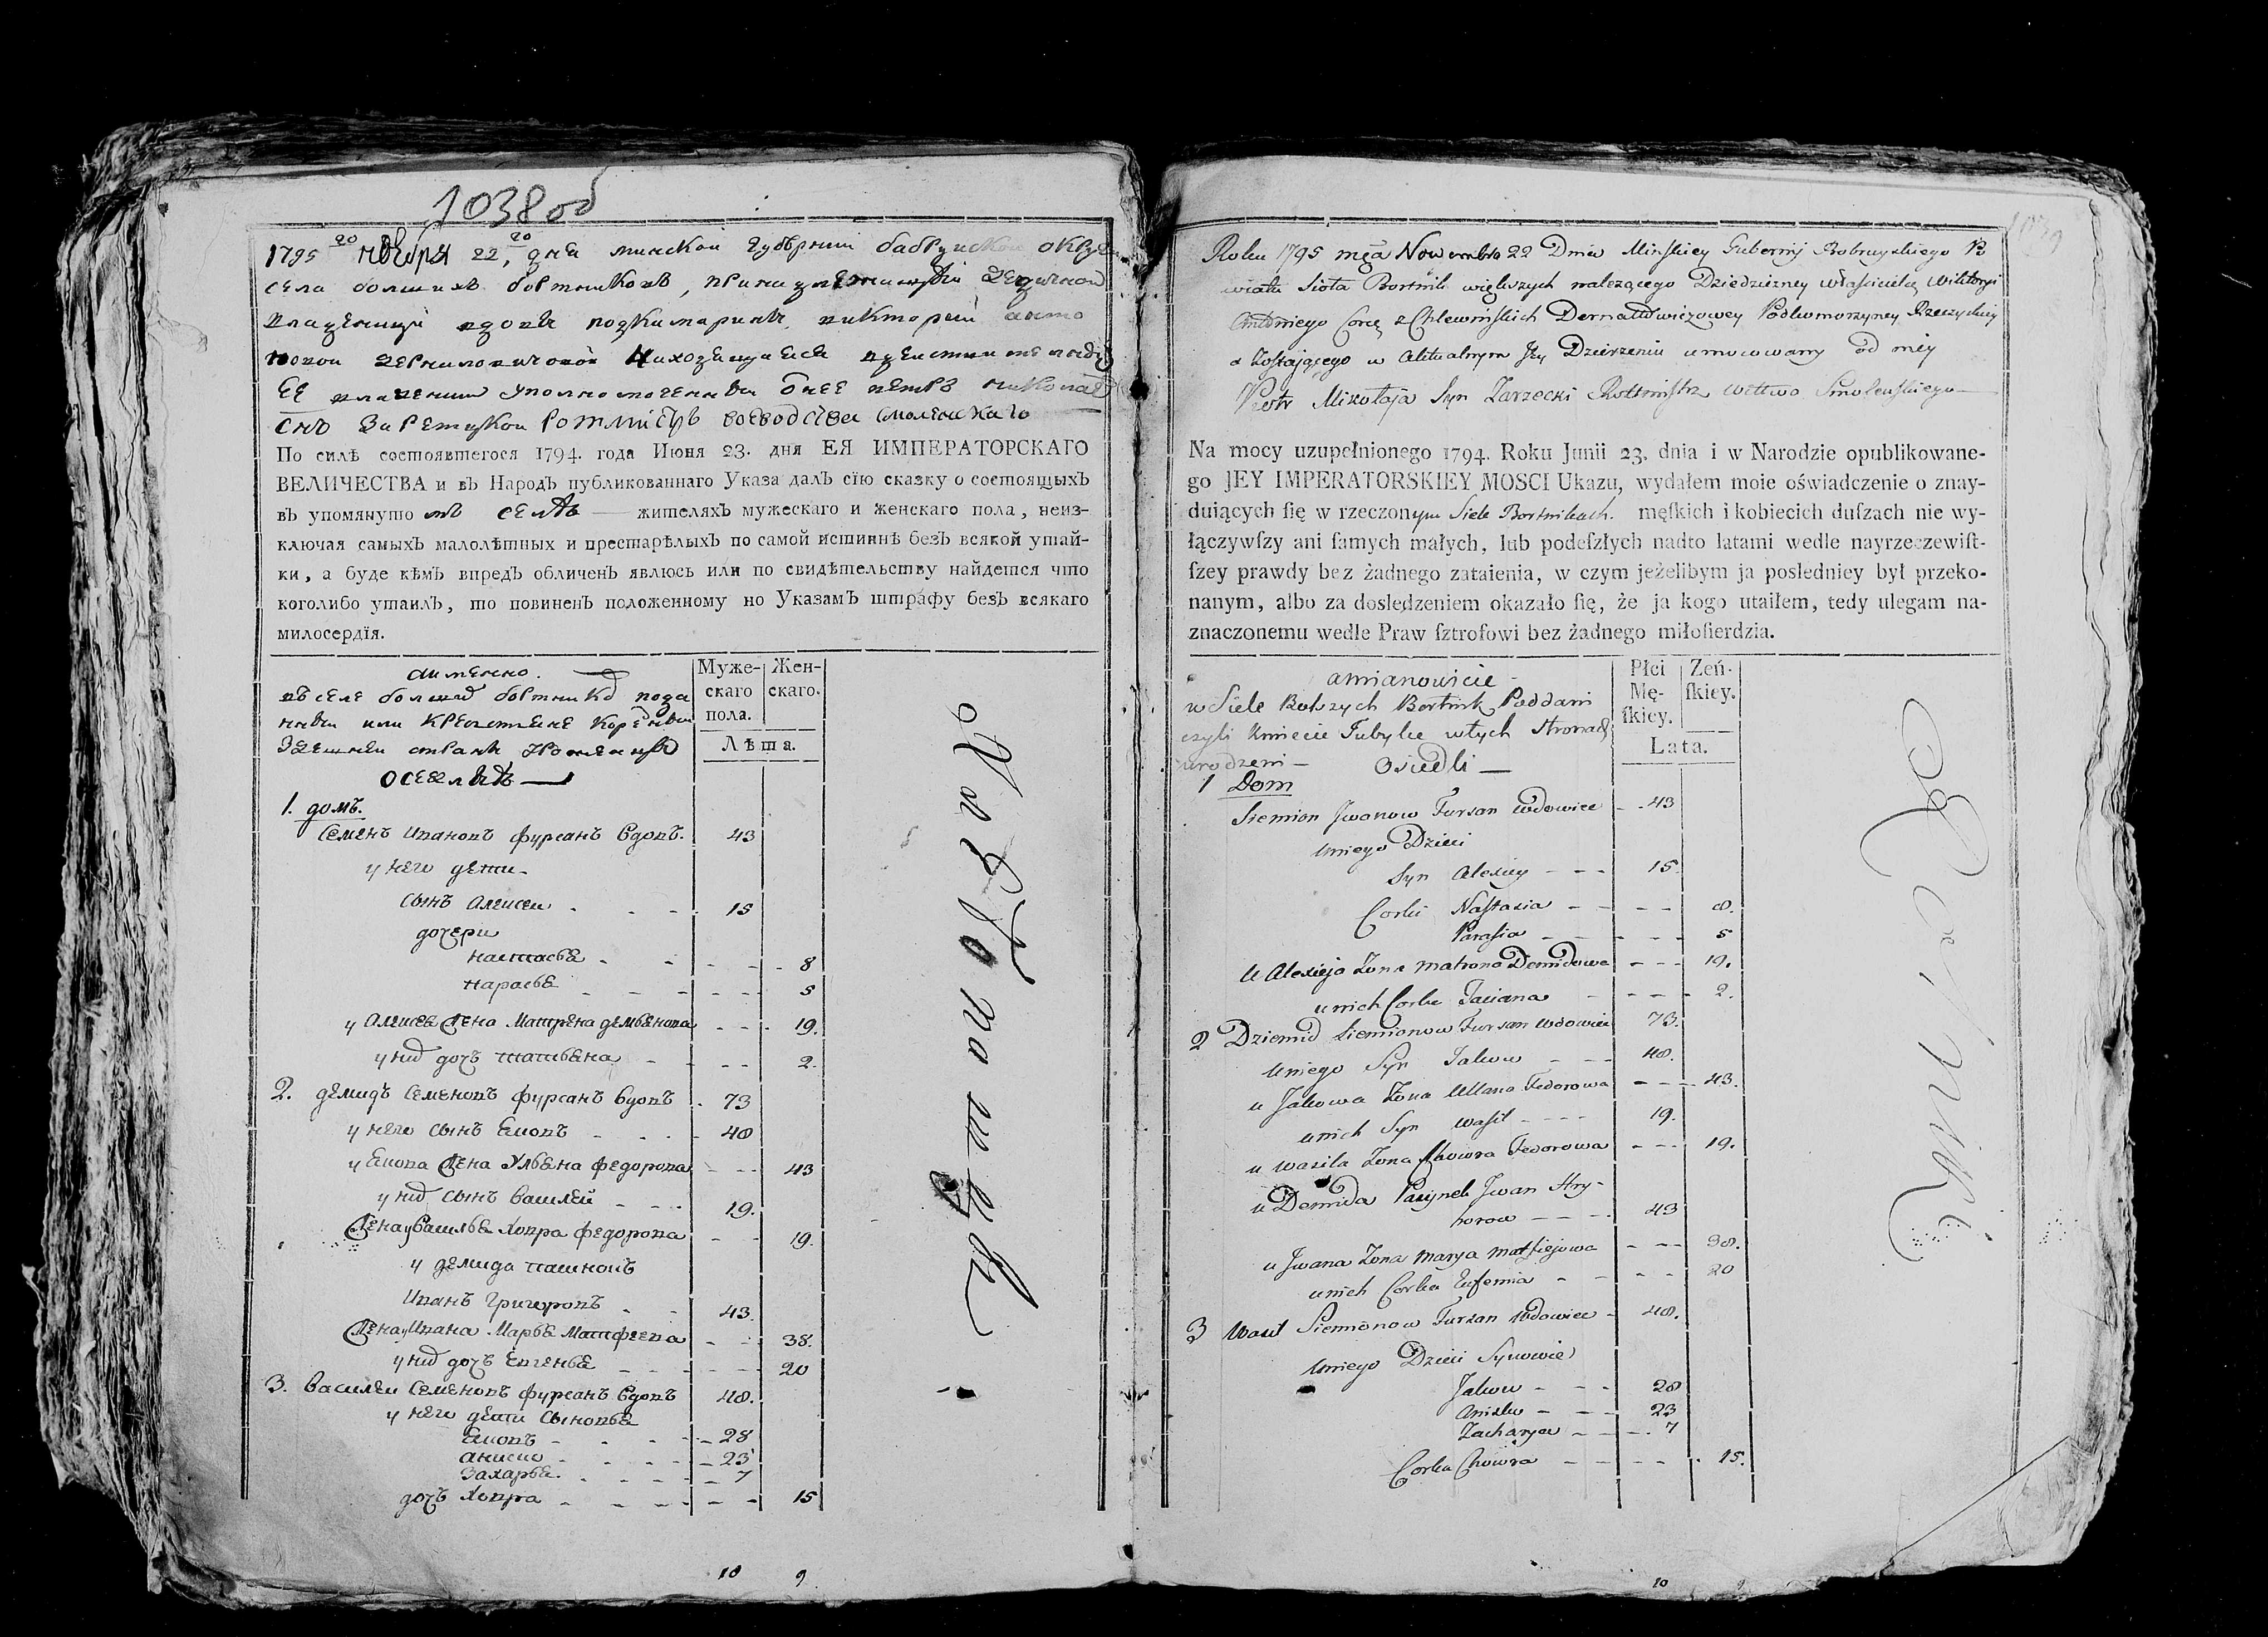 1038об
1795го ноября 22го дня минской губернии бабруйской округи
села болших бортников, принадлежащий
владелицы вдовы подкоморины виктории анто
новой
ее владении уполномоченный от нее петръ николаев
снъ Зарецкой Ротмистръ воеводства смоленскаго
По силѣ состоявшегося 1794. года Июня 23. дня ЕЯ ИМПЕРАТОРСКАГО
ВЕЛИЧЕСТВА и въ Народъ публикованнаго Указа далъ сїю сказку о состоящыхъ
въ упомянуто мъ селѣ жителяхъ мужескаго и женскаго пола, неиз-
ключая самыхъ малолѣтныхъ и престарѣлыхъ по самой истиннѣ безъ всякой утай-
ки, а буде кѣмъ впредъ обличенъ явлюсь или по свидѣтельству найдется что
коголибо утаилъ, то повиненъ положенному по Указамъ штрафу безъ всякаго
милосердїя.
а именно.
Муже-
скаго
пола.
Жен-
скаго.
Лѣта.
въ селе болших бортника подда
нныи или крестьяне коренныи
здешнеи страны
оседлые
1. домъ.
Семенъ Ивановъ фурсанъ вдовъ. 43
у него дети
сынъ Алексеи 15
дочери
настасья 8
парасья 5
у Алексея жена Матрена демьянова 19.
у них дочь татьяна 2.
2. демидъ Семеновъ фурсанъ вдовъ 73
у него сынъ Яковъ 48
у Якова жена Ульяна федорова 43
у них сынъ Василей 19.
жена у Василья Ховра федорова 19.
у демида пасынокъ
Иванъ Григоровъ 43.
жена у Ивана Марья Матфеева 38.
у них дочь Евгенья 20
3. Василеи Семеновъ фурсанъ вдовъ 48.
у него дети сыновья
Яковъ 28
Анисио 23
Захарья. 7
дочь Ховра 15
10 9
Roku 1795 mca Nowembra 22 Dnia Mińskiey Gubernij Bobruyskiego Po
wiatu Sioła Bortnik większych należącego Dziedziczney właścicielce Wiktoryi
Antoniego Corce z Chlewińskich Podkomorzyney Rzeczyckiey
a Zostającego w Aktualnym Jey Dzierżeniu umocowany od niey
Piotr Mikołaja Syn Zarzecki Rotmistrz wottwa Smoleńskiego
Na mocy uzupełnionego 1794. Roku Junii 23. dnia i w Narodzie opublikowane-
go JEY IMPERATORSKIEY MOSCI Ukazu, wydałem moie oświadczenie o znay-
duiących ſię w rzeczonym Siele Bortnikach. męſkich i kobiecich duſzach nie wy-
łączywſzy ani ſamych małych, lub podeſzłych nadto latami wedle nayrzeczewiſt-
ſzey prawdy bez żadnego zataienia, w czym jeżelibym ja posledniey był przeko-
nanym, albo za dosledzeniem okazało ſię, że ja kogo utaiłem, tedy ulegam na-
znaczonemu wedle Praw ſztrofowi bez żadnego miłoſierdzia.
amianowicie
Płci
Mę-
ſkiey.
Zeń-
ſkiey.
Lata.
w Siele Bolszych Bortnik Poddani
czyli Kmiecie Tubylce wtych Stronach
urodzeni Osiedli
1 Dom
Siemion Jwanow Fursan Wdowiec 43
Uniego Dzieci
Syn Alexiey 15.
Corki Nastazia 8.
Parasia 5
U Alexieja Zona Matrona Demidowa 19.
unich Corka Taciana 2.
2 Dziemid Siemionow Fursan Wdowiec 73.
Uniego Syn Jakow 48.
u Jakowa Zona Ullana Fedorowa 43.
unich Syn Wasil 19.
u Wasila Zona Chowra Fedorowa 19.
u Demida Pasynek Jwan Hry-
horow 43
u Jwana Zona Marya Matfiejowa 38.
unich Corka Eufemia 20
3 Wasil Siemionow Fursan Wdowiec 48.
Uniego Dzieci Synowie
Jakow 28
Anisko 23
Zacharya 7
Corka Chowra 15.
10 9